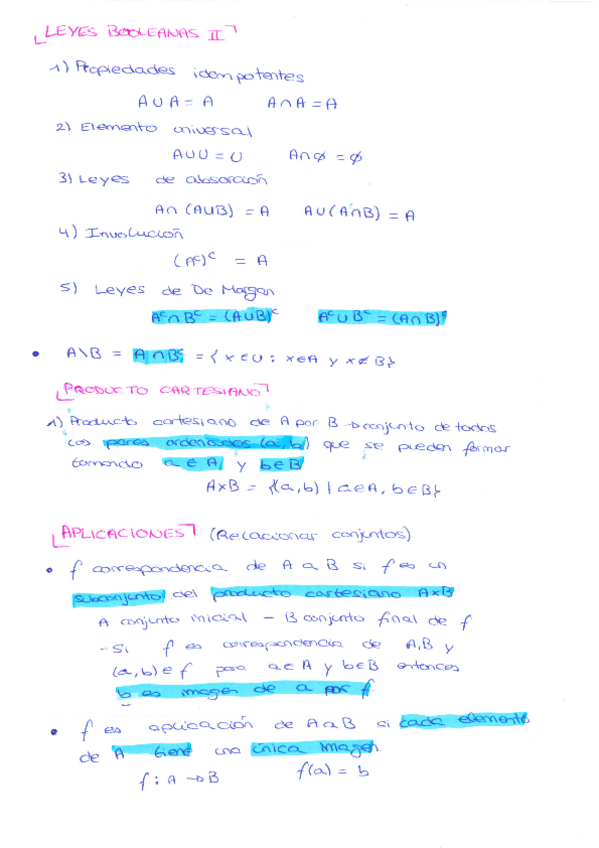 LEYES BOOLEANAS II
1) Propiedades idempotentes
A∪A = A A∩A = A
2) Elemento universal
A∪U = U A∩∅ = ∅
3) Leyes de absorción
A∩(A∪B) = A A∪(A∩B) = A
4) Involución
(Aᶜ)ᶜ = A
5) Leyes de De Morgan
Aᶜ∩Bᶜ = (A∪B)ᶜ Aᶜ∪Bᶜ = (A∩B)ᶜ
• A\B = A∩Bᶜ = {x∈U : x∈A y x∉B}
PRODUCTO CARTESIANO
1) Producto cartesiano de A por B → conjunto de todos
los pares ordenados (a,b) que se pueden formar
tomando a∈A y b∈B
A×B = {(a,b) | a∈A, b∈B}
APLICACIONES (Relacionar conjuntos)
• f correspondencia de A a B si f es un
subconjunto del producto cartesiano A×B
A conjunto inicial – B conjunto final de f
- Si f es correspondencia de A,B y
(a,b)∈f para a∈A y b∈B entonces
b es imagen de a por f
• f es aplicación de A a B si cada elemento
de A tiene una única imagen
f : A → B f(a) = b